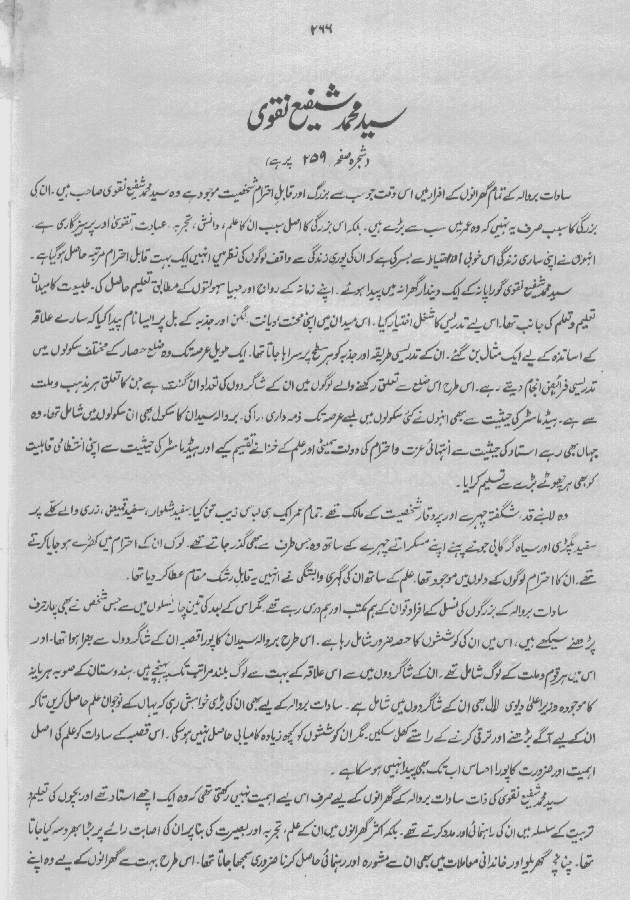 ۲۶۶
سید محمد شفیع نقوی
(شجرہ صفحہ ۲۵۹ پر ہے)
سادات بروالہ کے تمام گھرانوں کے افراد میں اس وقت جو سب سے بزرگ اور قابل احترام شخصیت موجود ہے وہ سید محمد شفیع نقوی صاحب ہیں۔ ان کی
بزرگی کا سبب صرف یہ نہیں کہ وہ عمر میں سب سے بڑے ہیں۔ بلکہ اس بزرگی کا اصل سبب ان کا علم، دانش، تجربہ، عبادت، تقویٰ اور پرہیزگاری ہے۔
انہوں نے اپنی ساری زندگی اس خوبی اور احتیاط سے بسر کی ہے کہ ان کی پوری زندگی سے واقف لوگوں کی نظر میں انہیں ایک بہت قابل احترام مرتبہ حاصل ہو گیا ہے۔
سید محمد شفیع نقوی گوراپانہ کے ایک دیندار گھرانہ میں پیدا ہوئے۔ اپنے زمانہ کے رواج اور مہیا سہولتوں کے مطابق تعلیم حاصل کی۔ طبیعت کا میلان
تعلیم و تعلم کی جانب تھا۔ اس لیے تدریس کا شغل اختیار کیا۔ اس میدان میں اپنی محنت، دیانت، لگن اور جذبہ کے بل پر ایسا نام پیدا کیا کہ سارے علاقہ
کے اساتذہ کے لیے ایک مثال بن گئے۔ ان کے تدریسی طریقہ اور جذبہ کو ہر سطح پر سراہا جاتا تھا۔ ایک طویل عرصہ تک وہ ضلع حصار کے مختلف سکولوں میں
تدریسی فرائض انجام دیتے رہے۔ اس طرح اس ضلع سے تعلق رکھنے والے لوگوں میں ان کے شاگردوں کی تعداد ان گنت ہے جن کا تعلق ہر مذہب و ملت
سے ہے۔ ہیڈ ماسٹر کی حیثیت سے بھی انہوں نے کئی سکولوں میں لمبے عرصہ تک ذمہ داری ادا کی۔ بروالہ سیدان کا سکول بھی ان سکولوں میں شامل تھا۔ وہ
جہاں بھی رہے استاد کی حیثیت سے انتہائی عزت و احترام کی دولت سمیٹی اور علم کے خزانے تقسیم کیے اور ہیڈ ماسٹر کی حیثیت سے اپنی انتظامی قابلیت
کو بھی ہر چھوٹے بڑے سے تسلیم کرایا۔
وہ لانبے قد، شگفتہ چہرے اور پر وقار شخصیت کے مالک تھے۔ تمام عمر ایک ہی لباس زیب تن کیا۔ سفید شلوار، سفید قمیض، زری والے کلے پر
سفید پگڑی اور سیاہ گرگابی جوتے پہنے اپنے مسکراتے چہرے کے ساتھ وہ جس طرف سے بھی گذر جاتے تھے۔ لوگ ان کے احترام میں کھڑے ہو جایا کرتے
تھے۔ ان کا احترام لوگوں کے دلوں میں موجود تھا۔ علم کے ساتھ ان کی گہری وابستگی نے انہیں یہ قابل رشک مقام عطا کر دیا تھا۔
سادات بروالہ کے بزرگوں کی نسل کے افراد تو ان کے ہم مکتب اور ہم درس رہے تھے۔ مگر اس کے بعد کی تین چار نسلوں میں سے جس شخص نے بھی چار حرف
پڑھنے سیکھے ہیں، اس میں ان کی کوششوں کا حصہ ضرور شامل رہا ہے۔ اس طرح بروالہ سیدان کا پورا قصبہ ان کے شاگردوں سے بھرا ہوا تھا۔ اور
اس میں ہر قوم و ملت کے لوگ شامل تھے۔ ان کے شاگردوں میں سے اس علاقہ کے بہت سے لوگ بلند مراتب تک پہنچے ہیں۔ ہندوستان کے صوبہ ہریانہ
کا موجودہ وزیر اعلیٰ دیوی لال بھی ان کے شاگردوں میں شامل ہے۔ سادات بروالہ کے لیے بھی ان کی بڑی خواہش رہی کہ یہاں کے نوجوان علم حاصل کریں تاکہ
ان کے لیے آگے بڑھنے اور ترقی کرنے کے راستے کھل سکیں۔ مگر ان کوششوں کو کچھ زیادہ کامیابی حاصل نہیں ہو سکی۔ اس قصبہ کے سادات کو علم کی اصل
اہمیت اور ضرورت کا پورا احساس اب تک بھی پیدا نہیں ہو سکا ہے۔
سید محمد شفیع نقوی کی ذات سادات بروالہ کے گھرانوں کے لیے صرف اس لیے اہمیت نہیں رکھتی تھی کہ وہ ایک اچھے استاد تھے اور بچوں کی تعلیم و
تربیت کے سلسلہ میں ان کی راہنمائی اور مدد کرتے تھے۔ بلکہ اکثر گھرانوں میں ان کے علم، تجربہ اور بصیرت کی بنا پر ان کی اصابت رائے پر بڑا بھروسہ کیا جاتا
تھا۔ چنانچہ گھریلو اور خاندانی معاملات میں بھی ان سے مشورہ اور رہنمائی حاصل کرنا ضروری سمجھا جاتا تھا۔ اس طرح بہت سے گھرانوں کے لیے وہ اپنے